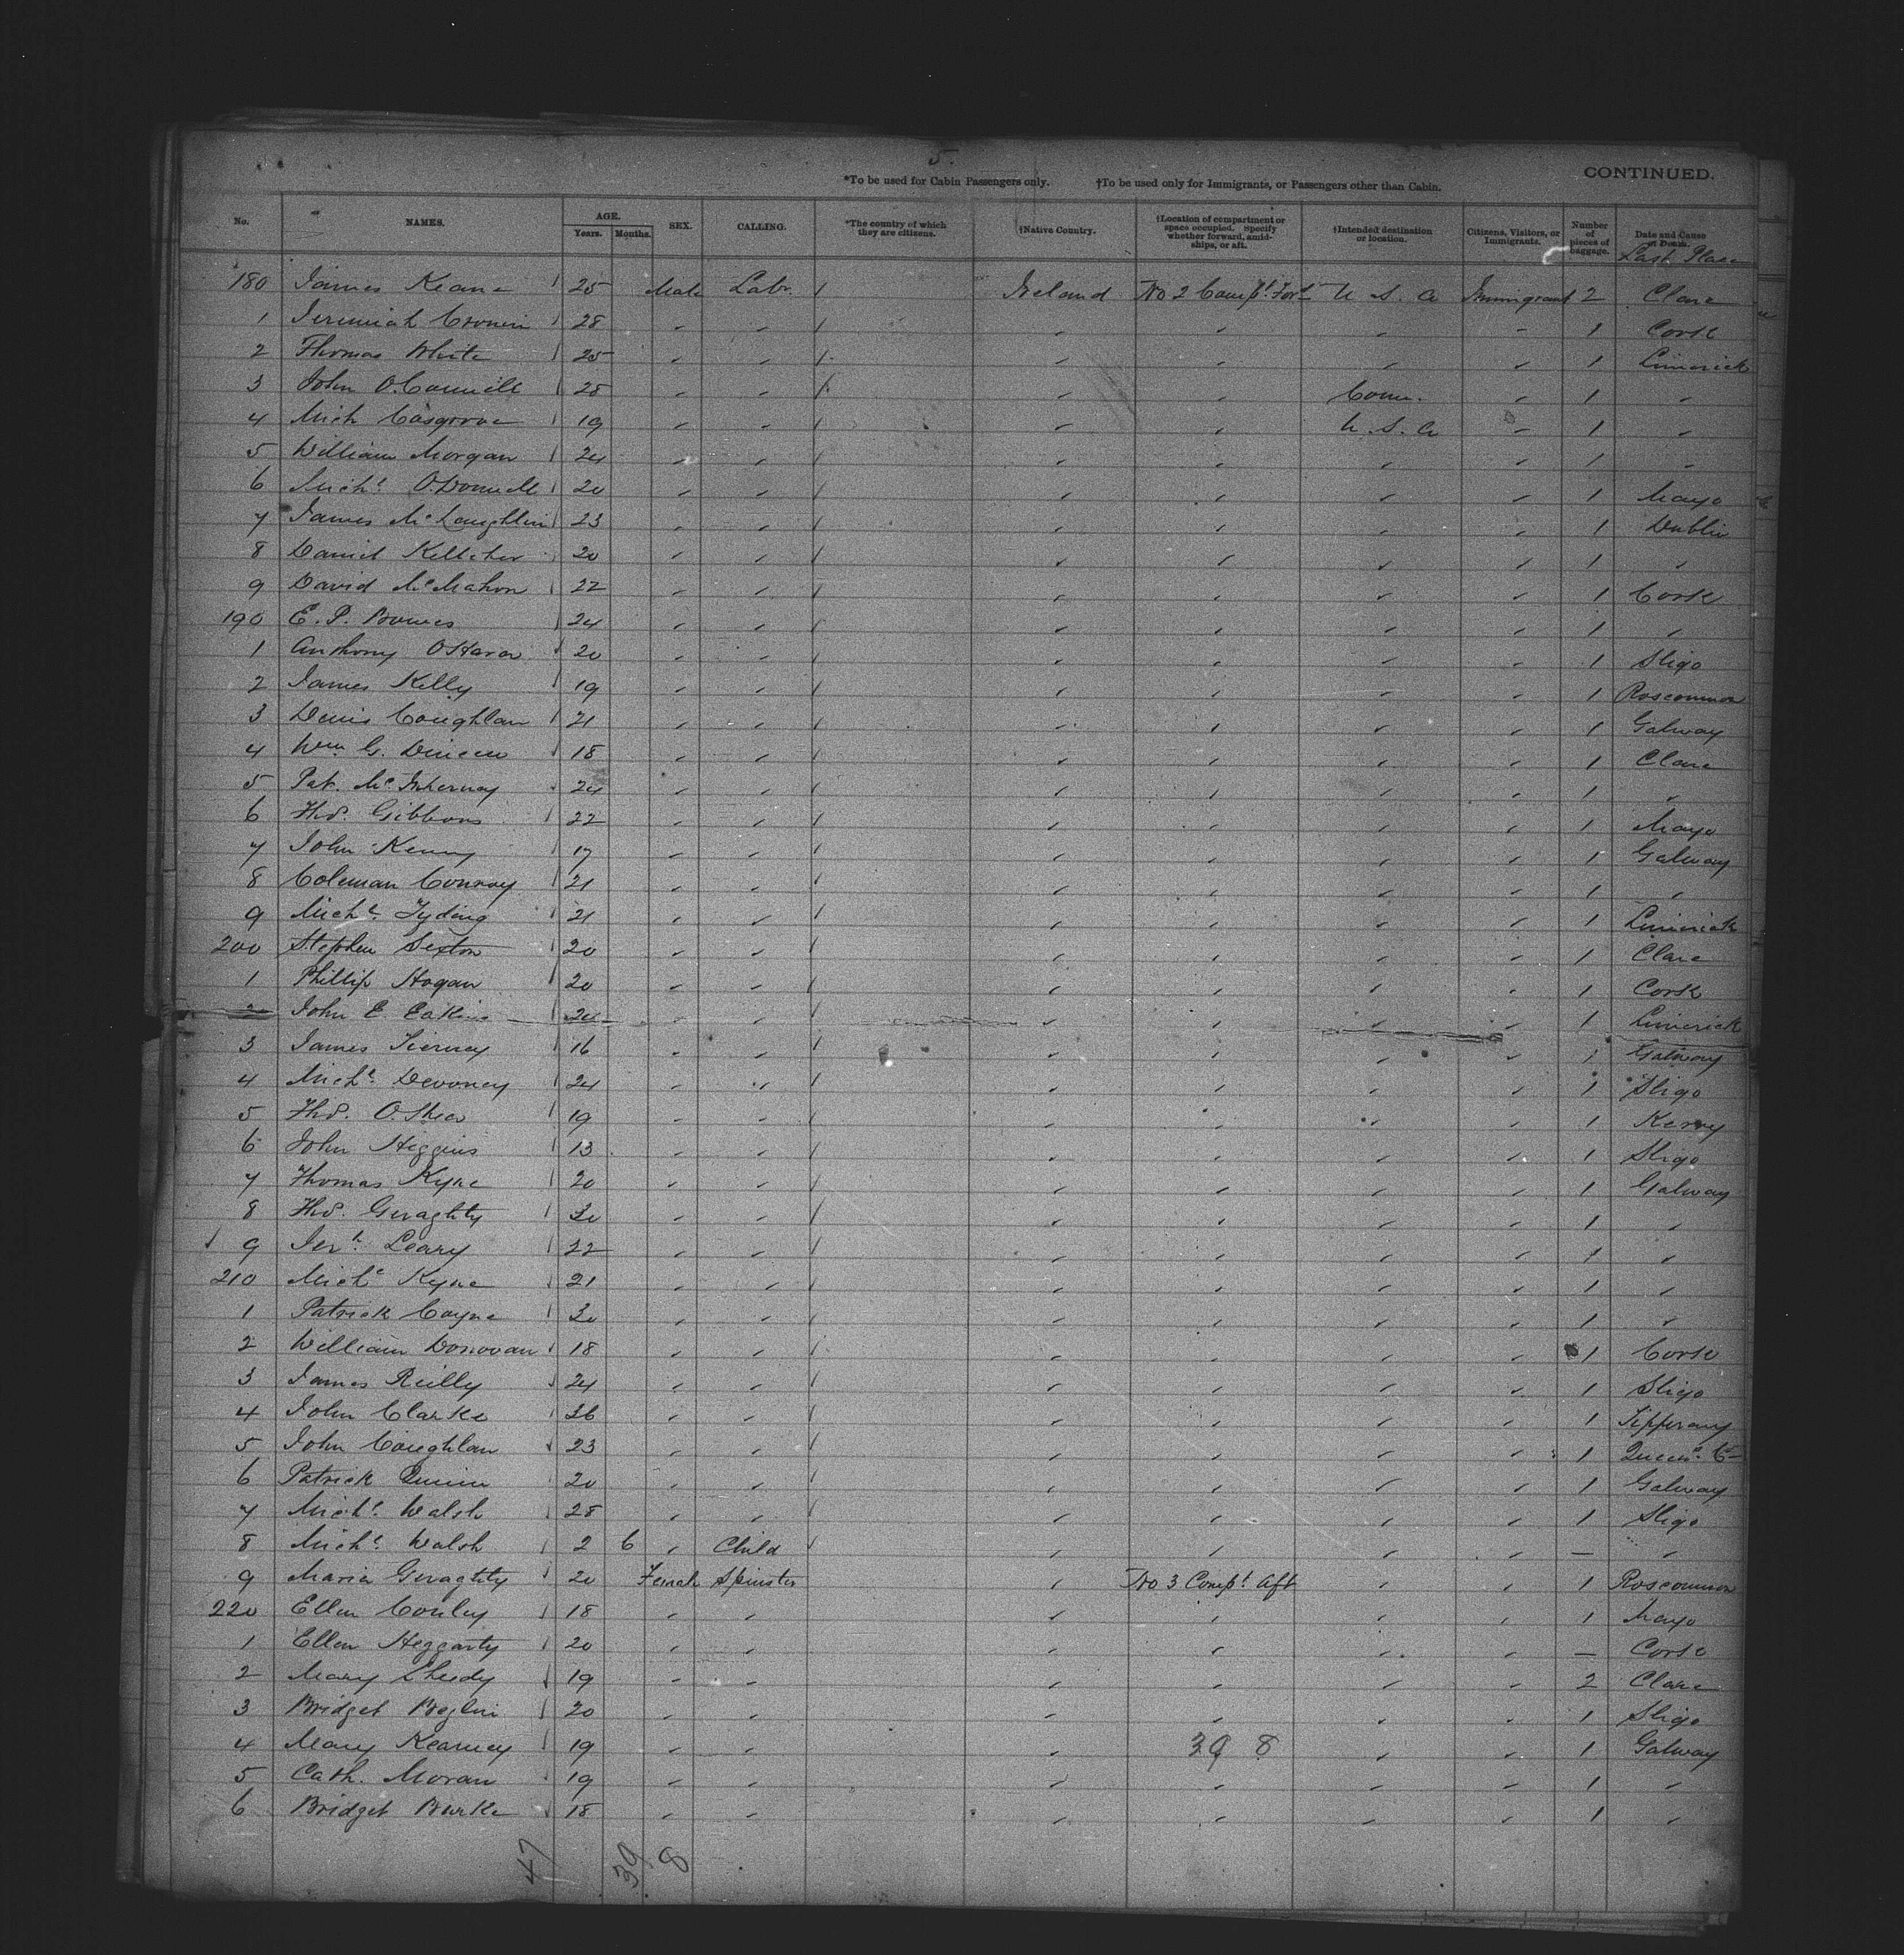 5.
*To be used for Cabin Passengers only. †To be used only for Immigrants, or Passengers other than Cabin. CONTINUED.
No. NAMES. AGE. Years. Months. SEX. CALLING. *The country of which they are citizens. †Native Country. †Location of compartment or space occupied. Specify whether forward, amidships, or aft. †Intended destination or location. Citizens, Visitors, or Immigrants. Number of pieces of baggage. Date and Cause of Death.
Last Place
180 James Keane 25 Male Labr. Ireland No 2 Compt. Ford U. S. A Immigrant 2 Clare
1 Jeremiah Cronin 28 〃 〃 〃 〃 〃 〃 1 Cork
2 Thomas White 25 〃 〃 〃 〃 〃 〃 1 Limerick
3 John O.Connell 28 〃 〃 〃 〃 Conn. 〃 1 〃
4 Mich Cosgrove 19 〃 〃 〃 〃 U. S. A 〃 1 〃
5 William Morgan 24 〃 〃 〃 〃 〃 〃 1 〃
6 Michl O.Donnell 20 〃 〃 〃 〃 〃 〃 1 Mayo
7 James McLaughlin 23 〃 〃 〃 〃 〃 〃 1 Dublin
8 Daniel Kelleher 20 〃 〃 〃 〃 〃 〃 1 〃
9 David McMahon 22 〃 〃 〃 〃 〃 〃 1 Cork
190 E. P. 24 〃 〃 〃 〃 〃 〃 1 〃
1 Anthony OHara 20 〃 〃 〃 〃 〃 〃 1 Sligo
2 James Kelly 19 〃 〃 〃 〃 〃 〃 1 Roscommon
3 Denis Coughlan 21 〃 〃 〃 〃 〃 〃 1 Galway
4 Wm G. Dineen 18 〃 〃 〃 〃 〃 〃 1 Clare
5 Pat. McInherney 24 〃 〃 〃 〃 〃 〃 1 〃
6 Thos. Gibbons 22 〃 〃 〃 〃 〃 〃 1 Mayo
7 John Kenny 17 〃 〃 〃 〃 〃 〃 1 Galway
8 Coleman Conroy 21 〃 〃 〃 〃 〃 〃 1 〃
9 Michl. Tyding 21 〃 〃 〃 〃 〃 〃 1 Limerick
200 Stephen Sexton 20 〃 〃 〃 〃 〃 〃 1 Clare
1 Phillip Hogan 20 〃 〃 〃 〃 〃 〃 1 Cork
2 John E. Eakins 24 〃 〃 〃 〃 〃 〃 1 Limerick
3 James Tierney 16 〃 〃 〃 〃 〃 〃 1 Galway
4 Michl. Devoney 24 〃 〃 〃 〃 〃 〃 1 Sligo
5 Thos. O.Shea 19 〃 〃 〃 〃 〃 〃 1 Kerry
6 John Higgins 13 〃 〃 〃 〃 〃 〃 1 Sligo
7 Thomas Kyne 20 〃 〃 〃 〃 〃 〃 1 Galway
8 Thos. Geraghty 30 〃 〃 〃 〃 〃 〃 1 〃
9 Jerh. Leary 22 〃 〃 〃 〃 〃 〃 1 〃
210 Michl Kyne 21 〃 〃 〃 〃 〃 〃 1 〃
1 Patrick Coyne 30 〃 〃 〃 〃 〃 〃 1 〃
2 William Donovan 18 〃 〃 〃 〃 〃 〃 1 Cork
3 James Reilly 24 〃 〃 〃 〃 〃 〃 1 Sligo
4 John Clarke 26 〃 〃 〃 〃 〃 〃 1 Tipperary
5 John Coughlan 23 〃 〃 〃 〃 〃 〃 1 Queens Co
6 Patrick Quinn 20 〃 〃 〃 〃 〃 〃 1 Galway
7 Michl. Walsh 28 〃 〃 〃 〃 〃 〃 1 Sligo
8 Michl. Walsh 2 6 〃 Child 〃 〃 〃 〃 — 〃
9 Maria Geraghty 20 Female Spinster 〃 No 3 Compt. Aft 〃 〃 1 Roscommon
220 Ellen Conley 18 〃 〃 〃 〃 〃 〃 1 Mayo
1 Ellen Heggarty 20 〃 〃 〃 〃 〃 〃 — Cork
2 Mary Sheedy 19 〃 〃 〃 〃 〃 〃 2 Clare
3 Bridget Beglin 20 〃 〃 〃 〃 〃 〃 1 Sligo
4 Mary Kearney 19 〃 〃 〃 39 8 〃 〃 1 Galway
5 Cath. Moran 19 〃 〃 〃 〃 〃 〃 1 〃
6 Bridget Burke 18 〃 〃 〃 〃 〃 〃 1 〃
47 39 8